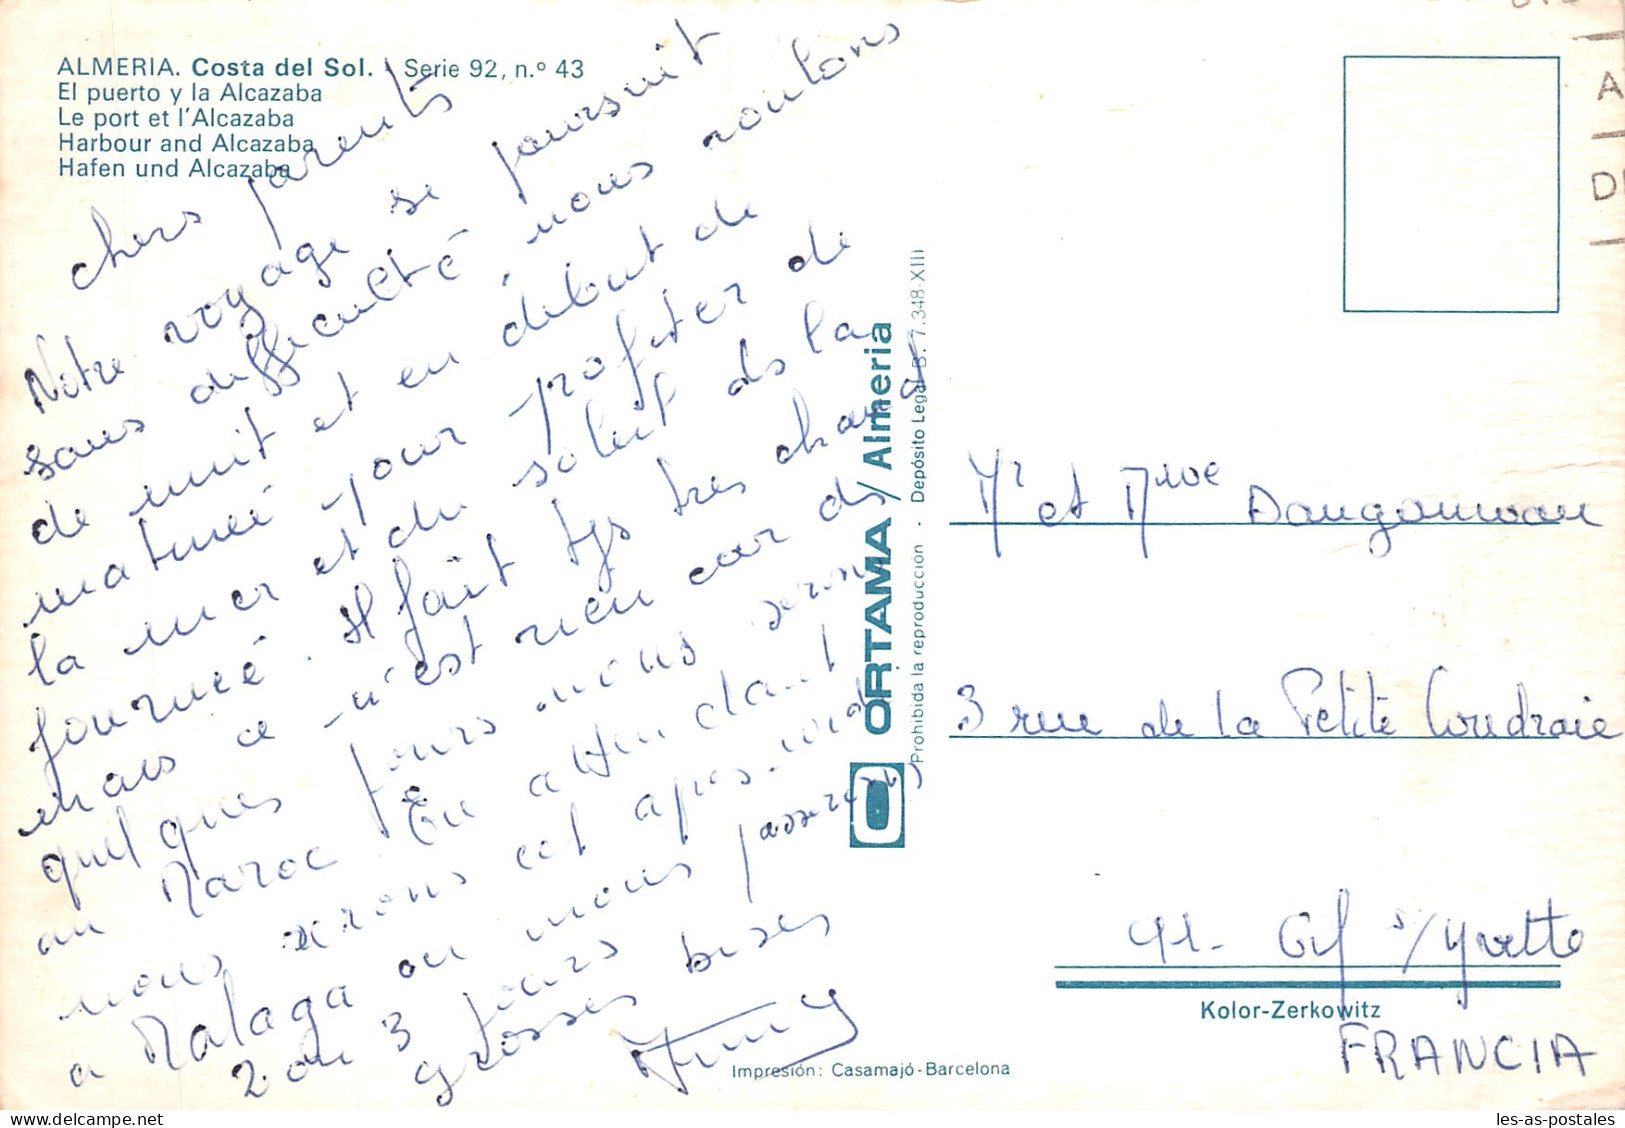 ALMERIA. Costa del Sol. Serie 92, n.º 43
El puerto y la Alcazaba
Le port et l'Alcazaba
Harbour and Alcazaba
Hafen und Alcazaba
chers parents
Notre voyage se poursuit
sans difficulté nous roulons
de nuit et en début de
matineé pour profiter de
la mer et du soleil ds la
journeé. Il fait tjs très chaud
mais ce n'est rien car ds
quelques jours nous serons
au Maroc. En attendant
nous irons cet après-midi
a Malaga ou nous passerons
2 ou 3 jours
grosses bises
ORTAMA / Almeria
Prohibida la reproducción - Depósito Legal B. 7.348-XIII
Mr et Mme
3 rue de la Petite Coudraie
91- Gif s/Yvette
Kolor-Zerkowitz
FRANCIA
Impresión: Casamajó-Barcelona
les-as-postales